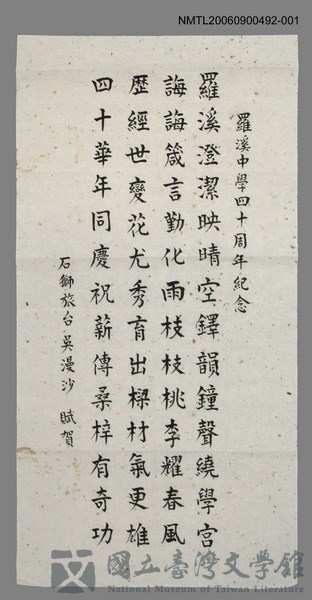 NMTL20060900492-001
羅溪中學四十周年紀念
羅溪澄潔映晴空鐸韻鐘聲繞學宮
誨誨箴言勤化雨枝枝桃李耀春風
歷經世變花尤秀育出樑材氣更雄
四十華年同慶祝薪傳桑梓有奇功
石獅旅台吳漫沙 賦賀
國立臺灣文學館
National Museum of Taiwan Literature